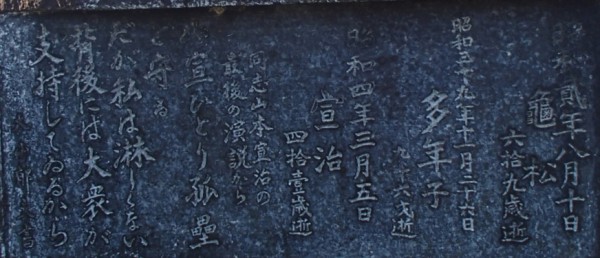 昭和貳年八月十日
龜松
六拾九歳逝
昭和三十九年十一月二十六日
多年子
九十六才逝
昭和四年三月五日
宣治
四拾壹歳逝
同志山本宣治の
最後の演説から
山宣ひとり孤壘
を守る
だが私は淋しくない
背後には大衆が
支持してゐるから